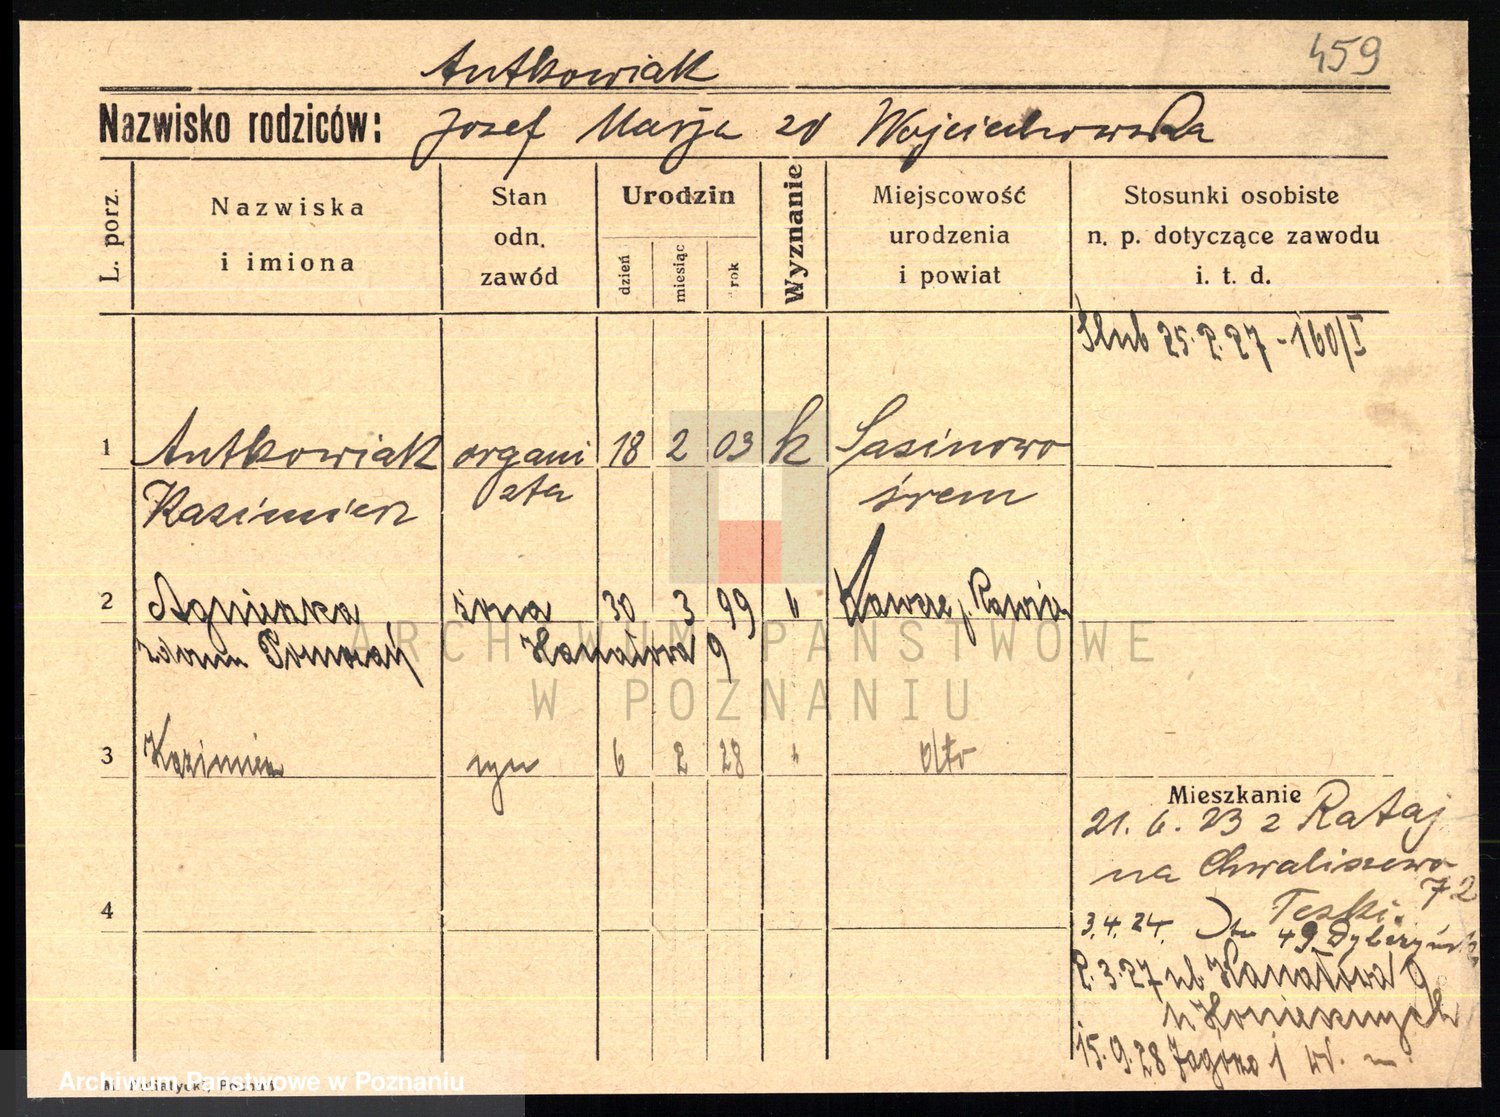 459
Antkowiak
Nazwisko rodziców: Józef Marja zd Wojciechowska
L. porz.
Nazwiska
i imiona
Stan
odn.
zawód
Urodzin
dzień
miesiąc
rok
Wyznanie
Miejscowość
urodzenia
i powiat
Stosunki osobiste
n. p. dotyczące zawodu
i. t. d.
Ślub 25.2.27 - 160/I
1 Antkowiak organi 18 2 03 k Sasinowo
Kazimierz sta śrem
2 Agnieszka żona 30 3 99 "
zdom Kanałowa 9
3 Kazimierz syn 6 2 28 " dto
Mieszkanie
21. 6. 23 z Rataj
na Chwaliszewo
72
3.4.24. 49
2.3.27 ul. Kanałowa 9
u Koniecznych
15.9.28 1
4
ARCHIWUM PAŃSTWOWE
W POZNANIU
Archiwum Państwowe w Poznaniu